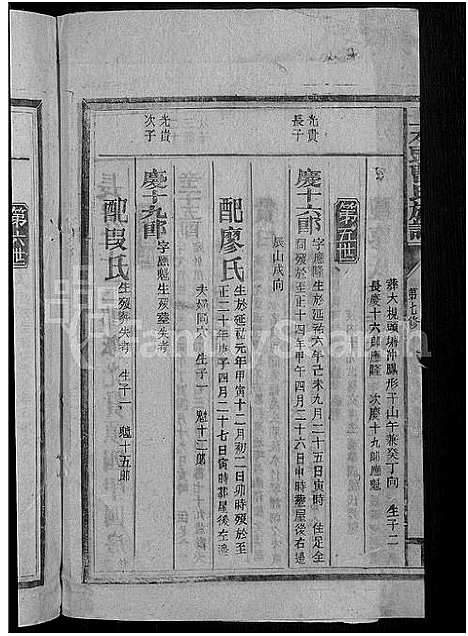 葬大梘頭塘沖鳳形子山午兼癸丁向 生子二
長慶十六郎應隆 次慶十九郎應魁
第五世
光貴
長子
慶十六郎
字應隆生於延祐六年己未九月二十五日寅時 住足全
司歿於至正十四年甲午四月二十六日申時葬屋後右邊
辰山戌向
配廖氏
生於延祐元年甲寅十二月初二日卯時歿於至
正二十年庚子四月二十七日寅時葬屋後左邊
夫婦同穴 生子一 魁十二郎
光貴
次子
慶十九郎
字應魁生歿葬失考
配段氏
生歿葬失考 生子一 魁十五郎
第六世
第七修